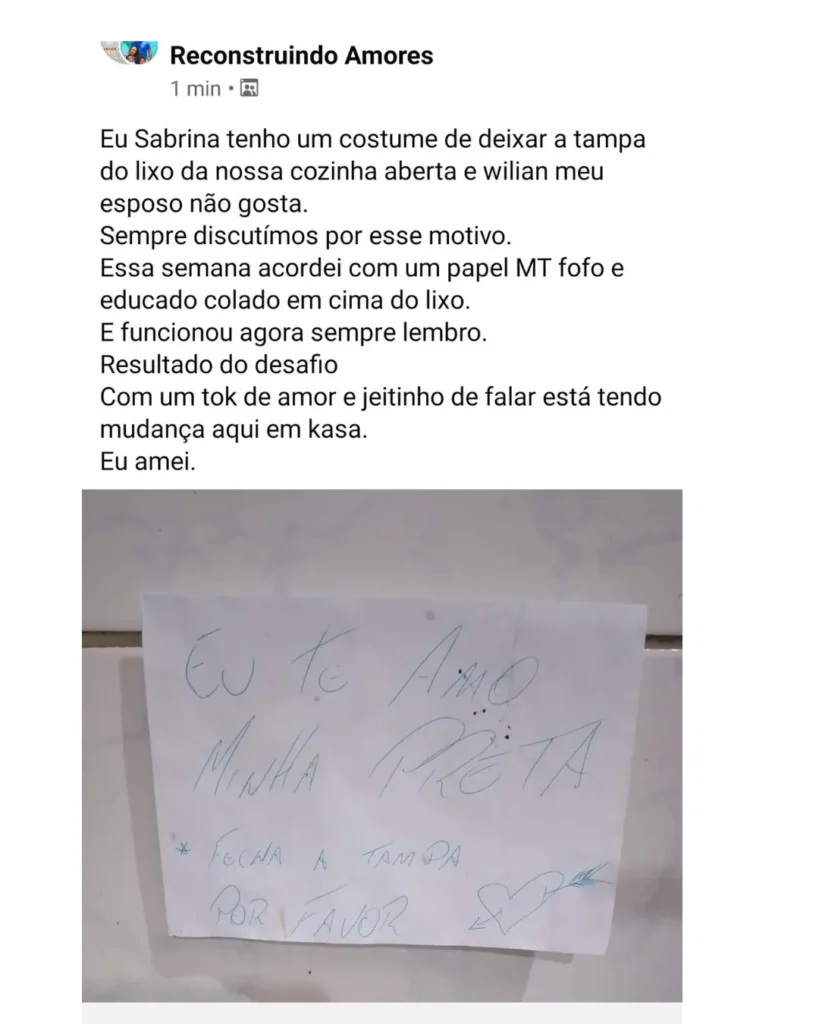 Reconstruindo Amores
1 min
Eu Sabrina tenho um costume de deixar a tampa
do lixo da nossa cozinha aberta e wilian meu
esposo não gosta.
Sempre discutímos por esse motivo.
Essa semana acordei com um papel MT fofo e
educado colado em cima do lixo.
E funcionou agora sempre lembro.
Resultado do desafio
Com um tok de amor e jeitinho de falar está tendo
mudança aqui em kasa.
Eu amei.
EU TE AMO
MINHA PRETA
* FECHA A TAMPA
POR FAVOR